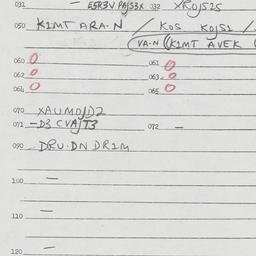 031 — ESR3V P8/S3X 032 XR0/S2S
050 K1MT ARA·N / KOS KO/S1 /
VA·N ((K1MT AVEK
060 0 061 0
062 0 063 0
064 0 065 0
070 XAUMO/D2
071 –D3 CVA/T3 072 –
090 DRU·DN DR1M
100 –
110 –
120 –